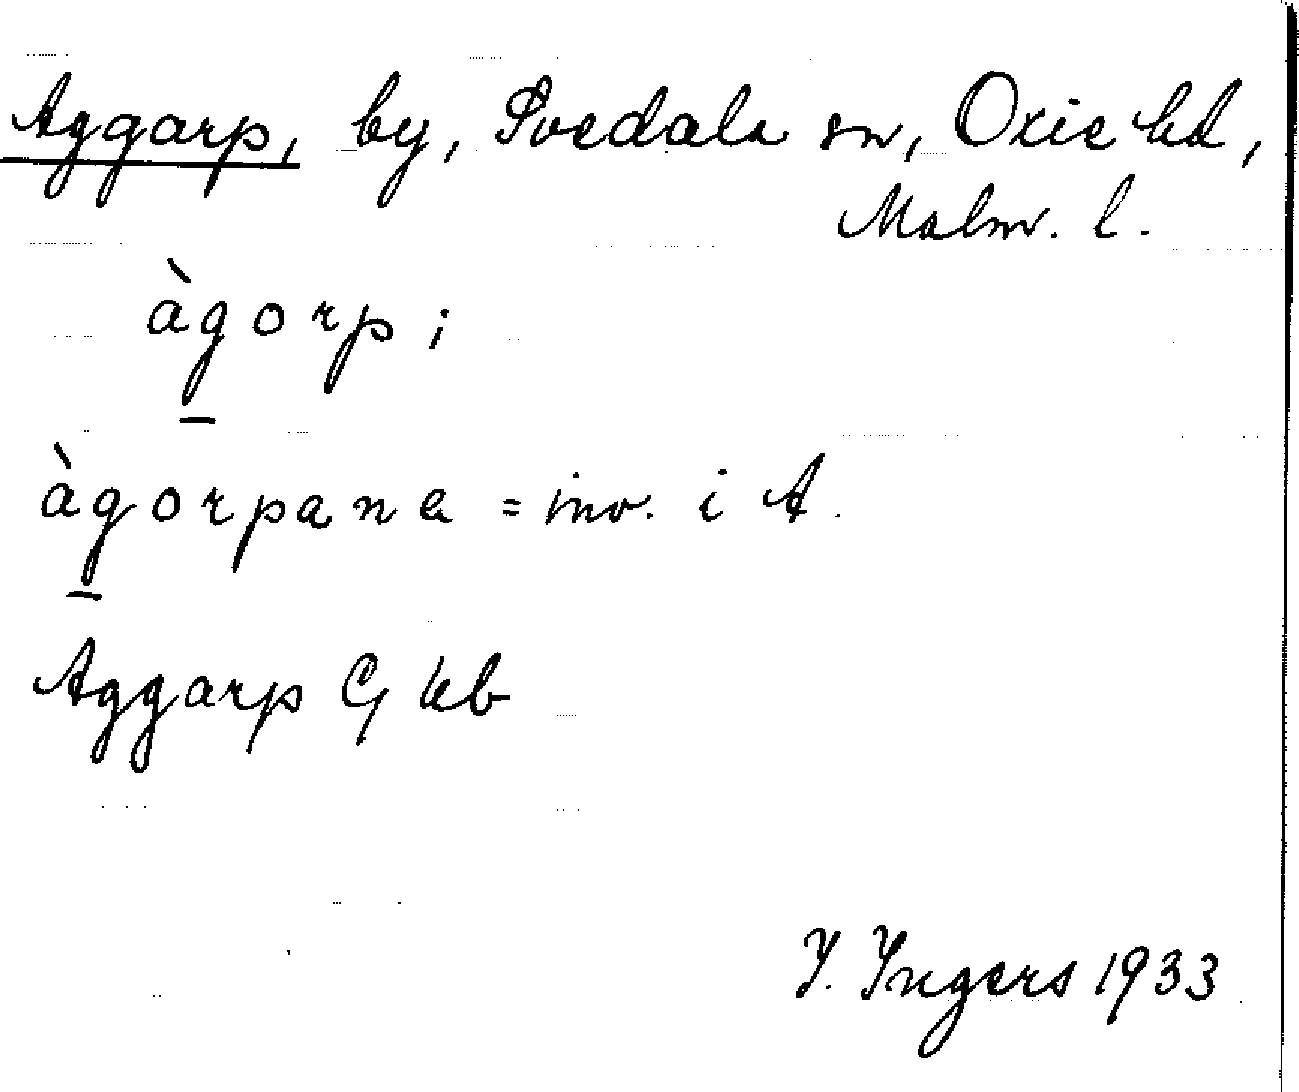 Aggarp, by, Svedala sn, Oxie hd,
Malm. l.
àgorp;
àgorpana = inv. i A.
Aggarp Gkb
I. Ingers 1933